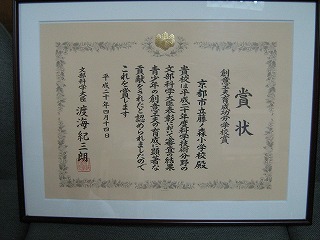 賞状
創意工夫育成功労学校賞
京都市立藤ノ森小学校殿
貴校は平成二十年度科学技術分野の
文部科学大臣表彰において審査の結果
青少年の創意工夫の育成に顕著な
貢献をされたと認められましたので
これを賞します
平成二十年四月十四日
文部科学大臣 渡海紀三朗